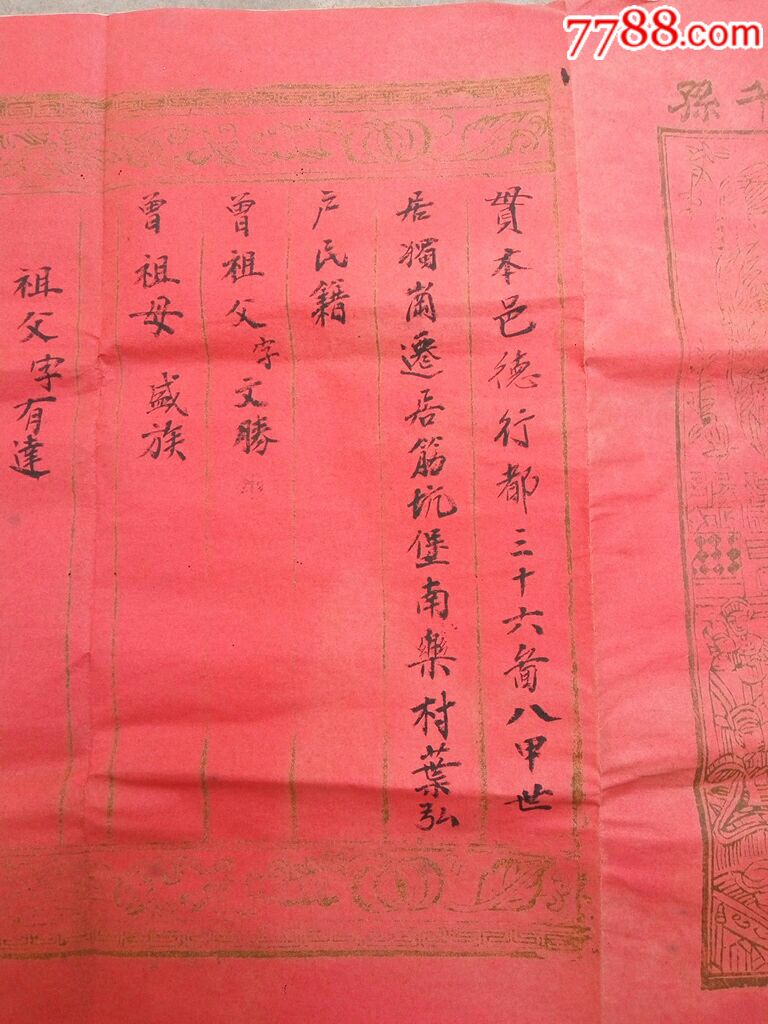 7788.com
孫千
貫本邑德行都三十六啚八甲世
居獨崗遷居筋坑堡南樂村葉弘
户民籍
曾祖父字文勝
曾祖母盛族
祖父字有達